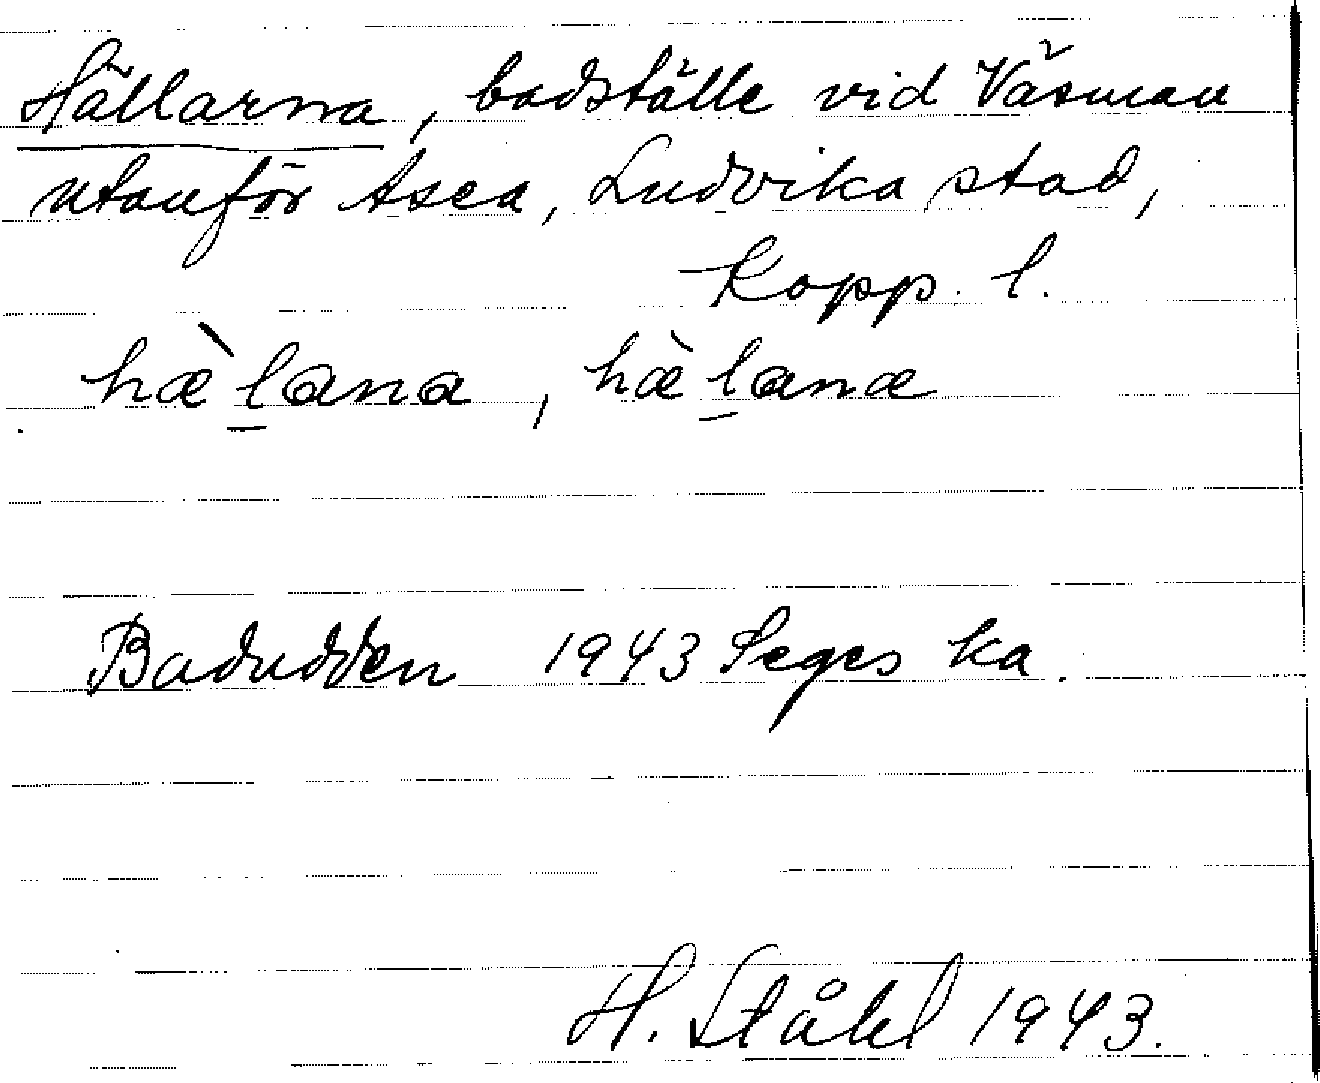 Hällarna, badställe vid Väsman
utanför Asea, Ludvika stad,
Kopp. l.
hæ̀l̲ana, hæ̀l̲anæ
Badudden 1943 Seges ka.
H. Ståhl 1943.